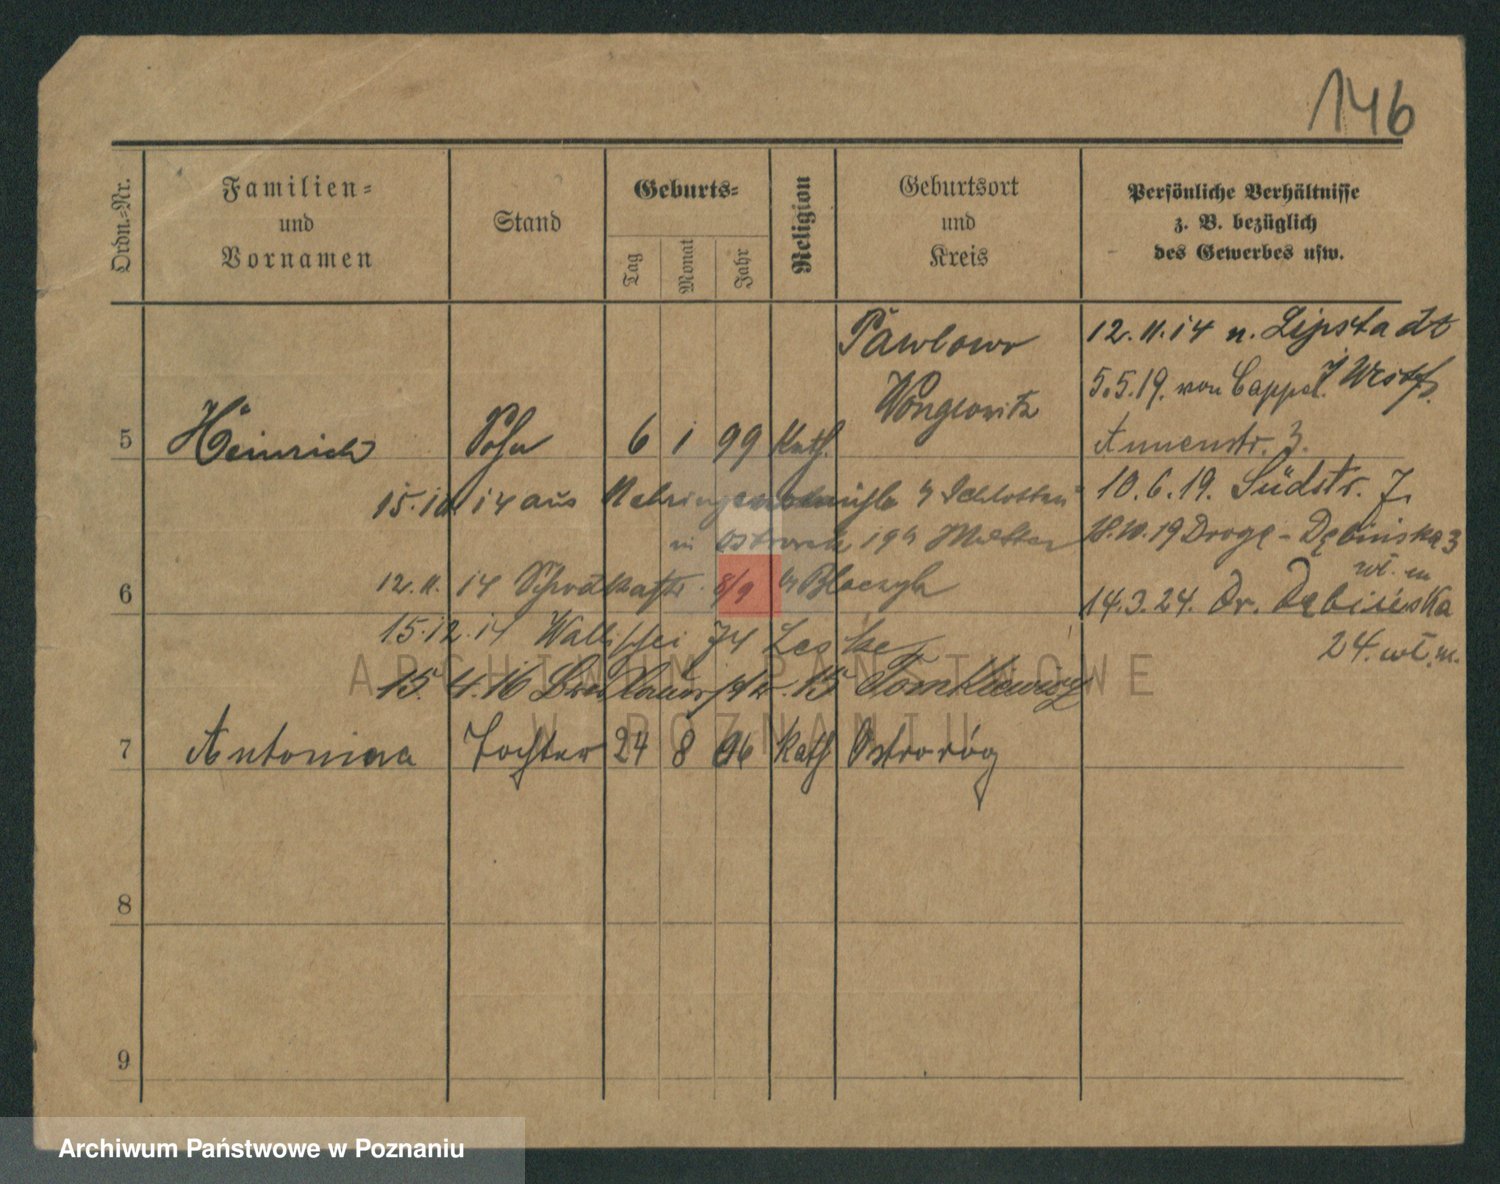 146
Ordn.-Nr.
Familien-
und
Vornamen
Stand
Geburts-
Tag
Monat
Jahr
Religion
Geburtsort
und
Kreis
Persönliche Verhältnisse
z. B. bezüglich
des Gewerbes usw.
5
Heinrich
Sohn
6
1
99
Kath.
Pawlowo
Wongrowitz
12.11.14 n. Lipstadt
5.5.19. von Cappel. Westf.
Annenstr. 3.
15.10.14 aus
in 19 b/ Mutter
10.6.19. Südstr. 7.
18.10.19 Droga-Dębinska 3
wł. m
6
12.11.14 8/9 b/
15.12.14 Wallischei 74
15.4.16 15 Tomkiewicz
14.3.24. Dr. Dębińska
24. wł. m.
7
Antonina
Tochter
24
8
96
Kath
Ostroróg
8
9
ARCHIWUM PAŃSTWOWE
W POZNANIU
Archiwum Państwowe w Poznaniu